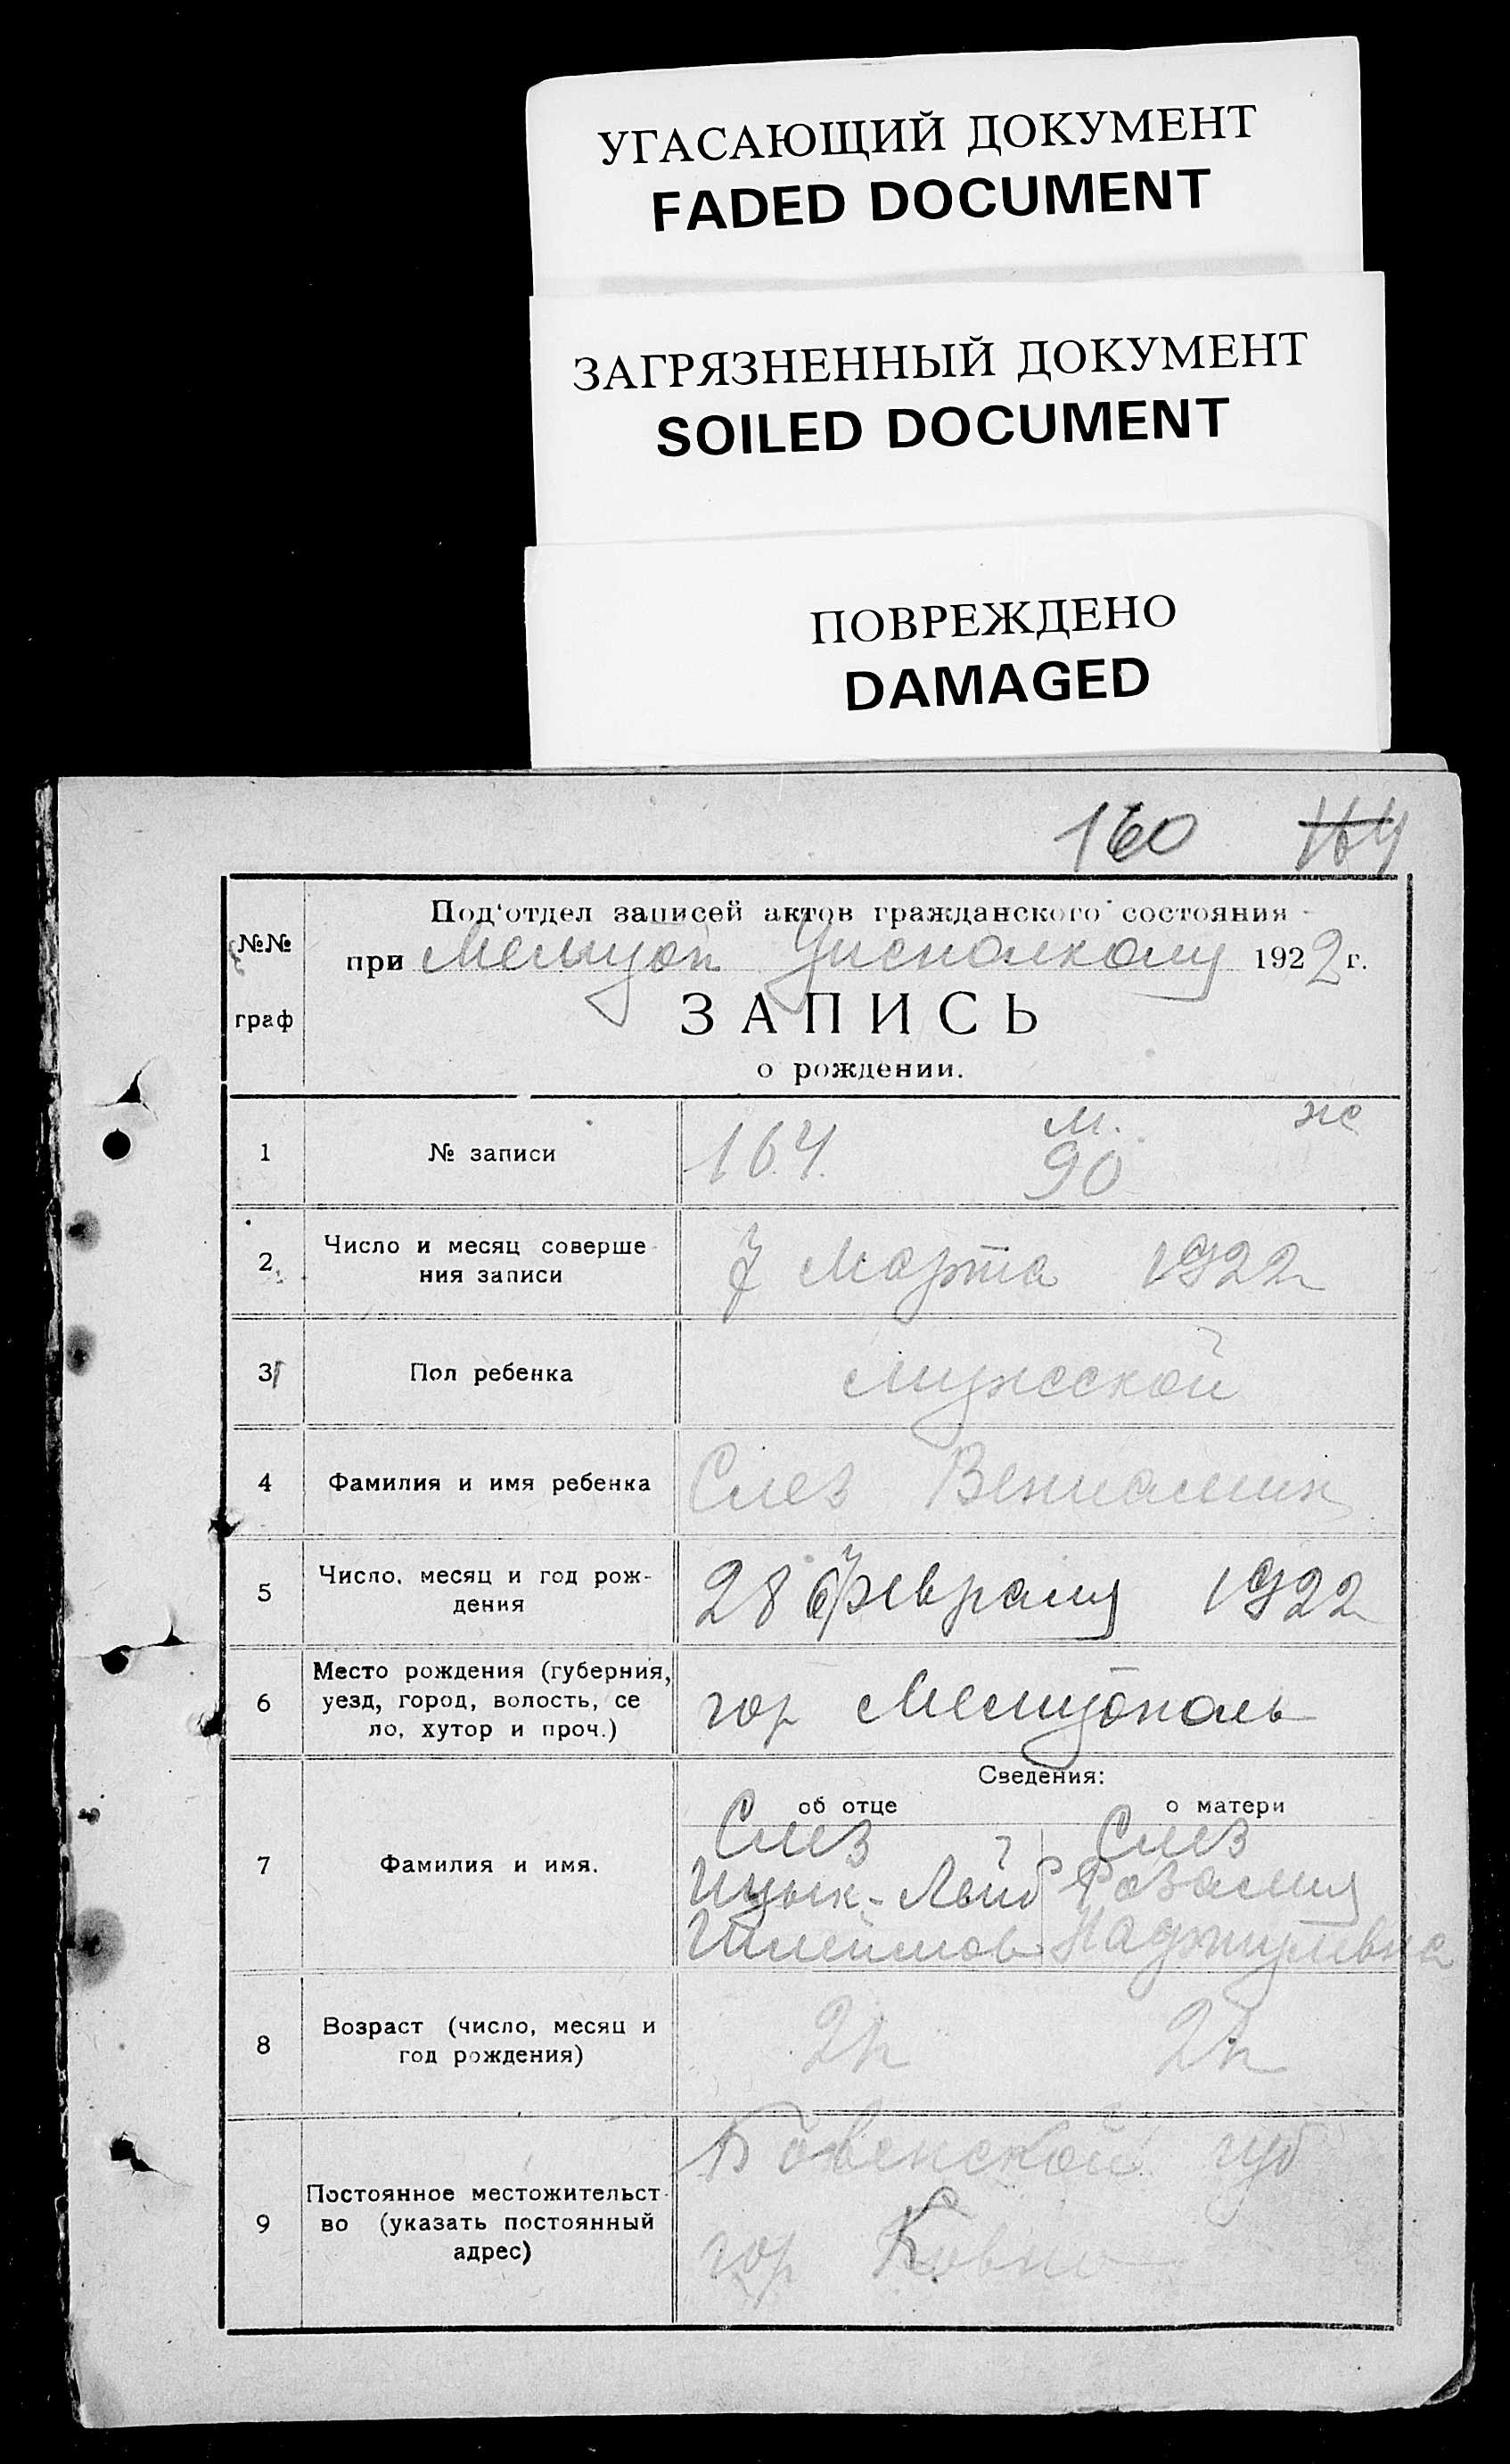 УГАСАЮЩИЙ ДОКУМЕНТ
FADED DOCUMENT
ЗАГРЯЗНЕННЫЙ ДОКУМЕНТ
SOILED DOCUMENT
ПОВРЕЖДЕНО
DAMAGED
160 164
№№ граф
Под'отдел записей актов гражданского состояния
при Уисполкому 1922 г.
ЗАПИСЬ
о рождении.
м. ж
1 № записи 164. 90
2 Число и месяц соверше-
ния записи
7 Марта 1922
3 Пол ребенка мужеской
4 Фамилия и имя ребенка Слез Вениамин
5 Число, месяц и год рож-
дения
28 февраля 1922
6 Место рождения (губерния,
уезд, город, волость, се
ло, хутор и проч.)
гор Мелитополь
Сведения:
об отце о матери
7 Фамилия и имя.
Слез Слез
Ицык-Лейб Розалия
8 Возраст (число, месяц и
год рождения)
9 Постоянное местожительст-
во (указать постоянный
адрес)
губ
гор Ковно